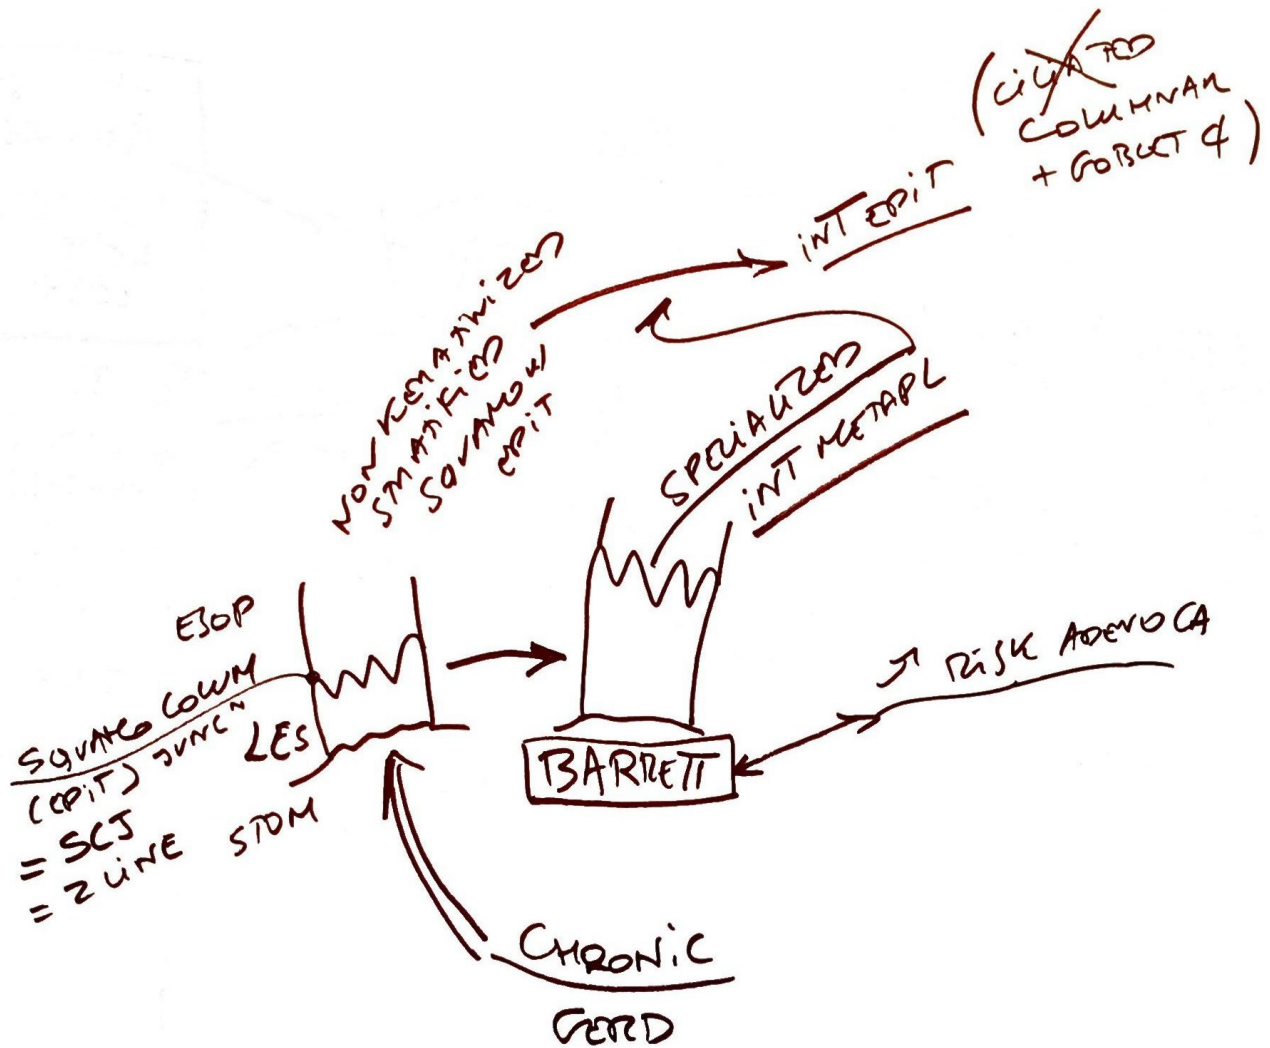 (CILIATED
COLUMNAR
+ GOBLET ¢)
INT EPIT
NON KERATINIZED
STRATIFIED
SQUAMOUS
EPIT
SPECIALIZED
INT METAPL
ESOP
SQUAMO COLUMN
(EPIT) JUNC^N
= SCJ
= Z LINE
LES
STOM
BARRETT
↗ RISK ADENOCA
CHRONIC
GERD